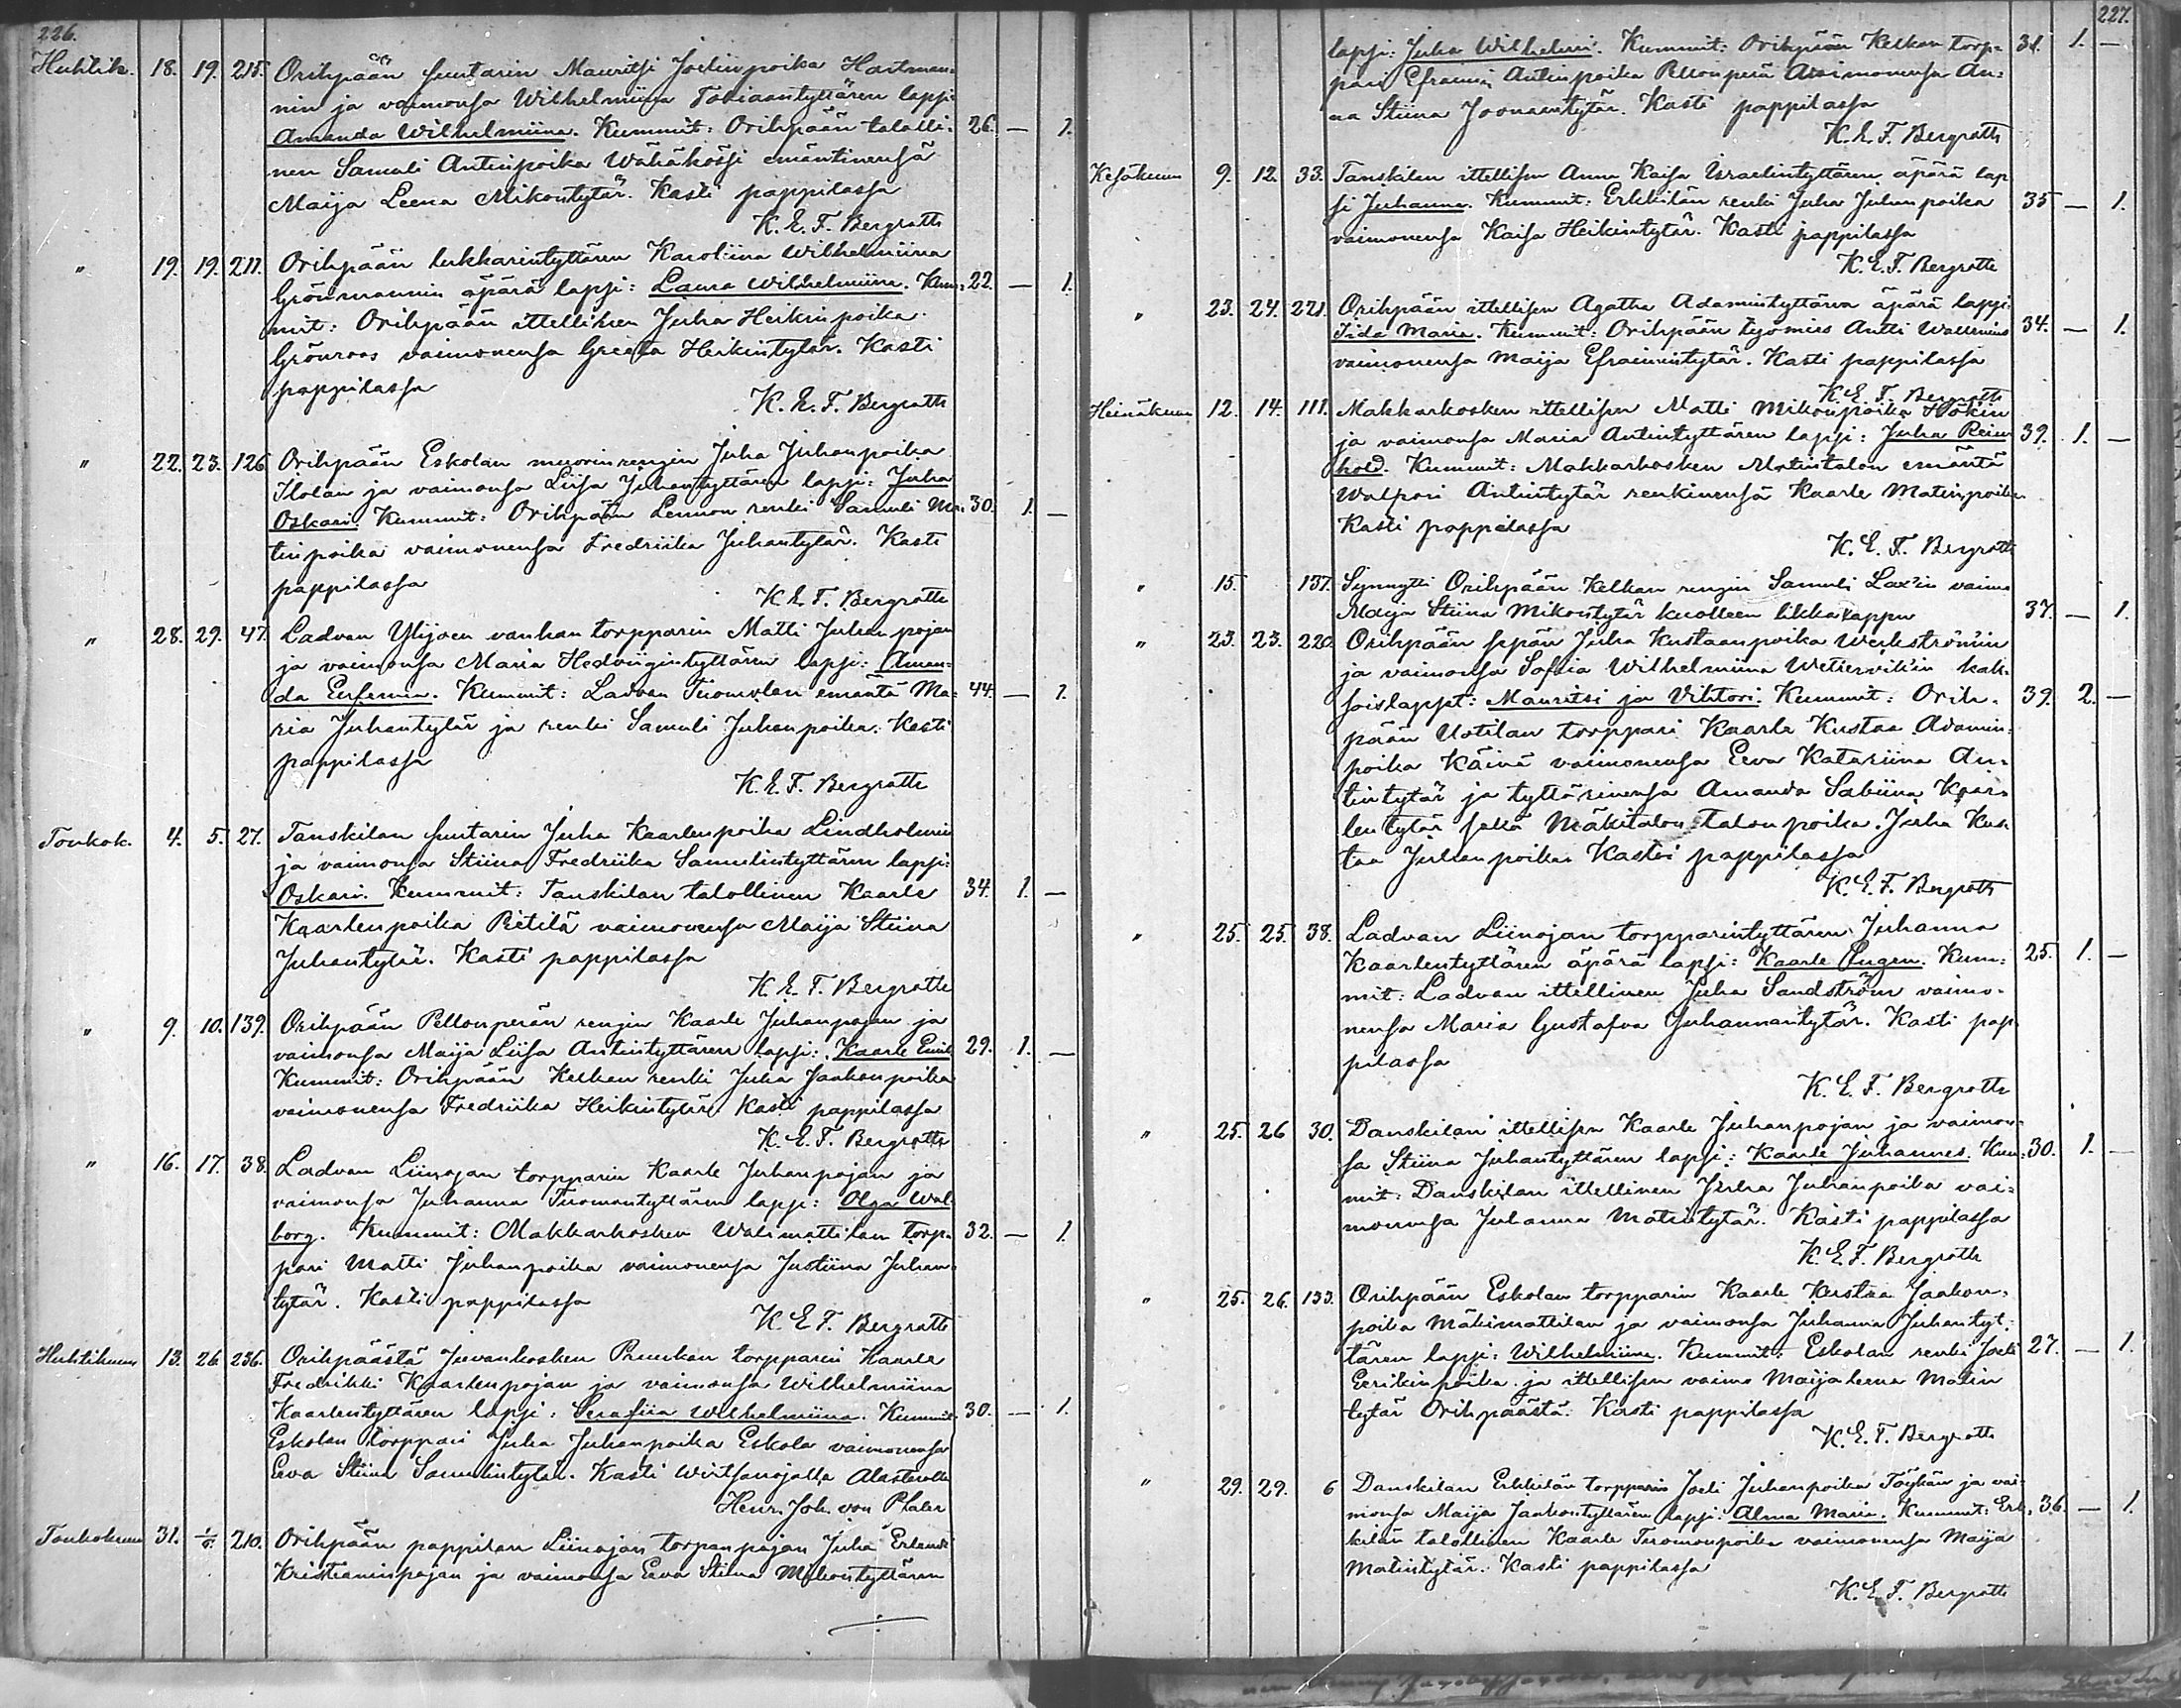 226.
Huhtik. 18. 19. 215. Orihpään suutarin Mauritsi Joelinpoika Hartman-
nin ja vaimonsa Wilhelmiina Tobiaantyttären lapsi
Amanda Wilhelmiina. Kummit: Orihpään talolli- 26. — 1.
nen Samuli Antinpoika Wähäkössi emäntinensä
Maija Leena Mikontytär. Kasti pappilassa
K. E. F. Bergroth
" 19. 19. 211. Orihpään lukkarintyttären Karoliina Wilhelmiina
Grönmannin äpärä lapsi: Laura Wilhelmiina. Kum- 22. — 1.
mit: Orihpään ittellinen Juha Heikinpoika
Grönroos vaimonensa Greeta Heikintytär. Kasti
pappilassa
K. E. F. Bergroth
" 22. 23. 126. Orihpään Eskolan nuorinrengin Juha Juhanpoika
Ilolan ja vaimonsa Liisa Juhantyttären lapsi: Juha
Oskari. Kummit: Orihpään Lennon renki Samuli Ma- 30. 1. —
tinpoika vaimonensa Fredriika Juhantytär. Kasti
pappilassa
K. E. F. Bergroth
" 28. 29. 47. Ladvan Ylijoen vanhan torpparin Matti Juhanpojan
ja vaimonsa Maria Hedviigintyttären lapsi: Aman-
da Eufemia. Kummit: Ladvan Tuomolan emäntä Ma- 44. — 1.
ria Juhantytär ja renki Samuli Juhanpoika. Kasti
pappilassa
K. E. F. Bergroth
Toukok. 4. 5. 27. Tanskilan suutarin Juha Kaarlenpoika Lindholmin
ja vaimonsa Stiina Fredriika Samulintyttären lapsi:
Oskari. Kummit: Tanskilan talollinen Kaarle 34. 1. —
Kaarlenpoika Pietilä vaimonensa Maija Stiina
Juhantytär. Kasti pappilassa
K. E. F. Bergroth
" 9. 10. 139. Orihpään Pellonperän rengin Kaarle Juhanpojan ja
vaimonsa Maija Liisa Antintyttären lapsi: Kaarle Emil 29. 1. —
Kummit: Orihpään Kelkan renki Juha Jaakonpoika
vaimonensa Fredriika Heikintytär. Kasti pappilassa
K. E. F. Bergroth
" 16. 17. 38. Ladvan Liinojan torpparin Kaarle Juhanpojan ja
vaimonsa Juhanna Tuomantyttären lapsi: Olga Wal-
borg. Kummit: Makkarkosken Walimattilan torp- 32. — 1.
pari Matti Juhanpoika vaimonensa Justiina Juhan-
tytär. Kasti pappilassa
K. E. F. Bergroth
Huhtikuun 13. 26. 236. Orihpäästä Juvankosken Ruuskan torpparin Kaarle
Fredrikki Kaarlenpojan ja vaimonsa Wilhelmiina
Kaarlentyttären lapsi: Serafiia Wilhelmiina. Kummit 30. — 1.
Eskolan torppari Juha Juhanpoika Eskola vaimonensa
Eeva Stiina Samulintytär. Kasti Wirtsanojalla Alastarolla
Henr. Joh. von Phaler
Toukokuun 31. 1/6. 210. Orihpään pappilan Liinojan torpanpojan Juha Erlandi
Kristianinpojan ja vaimonsa Eeva Stiina Mikontyttären
227.
lapsi: Juha Wilhelmi. Kummit: Orihpään Kelkan torp- 31. 1. —
pari Efraimi Antinpoika Pellonperä vaimonensa An-
na Stiina Joonaantytär. Kasti pappilassa
K. E. F. Bergroth
Kesäkuun 9. 12. 33. Tanskilan ittellisen Anna Kaisa Israelintyttären äpärä lap-
si Juhanna. Kummit: Erkkilän renki Juha Juhanpoika 35 — 1.
vaimonensa Kaisa Heikintytär. Kasti pappilassa
K. E. F. Bergroth
" 23. 24. 221. Orihpään ittellisen Agatha Adamintyttären äpärä lapsi
Iida Maria. Kummit: Orihpään työmies Antti Wallenius 34. — 1.
vaimonensa Maija Efraimintytär. Kasti pappilassa
K. E. F. Bergroth
Heinäkuun 12. 14. 111. Makkarkosken ittellisen Matti Mikonpoika Hökin
ja vaimonsa Maria Antintyttären lapsi: Juha Rein- 39. 1. —
hold. Kummit: Makkarkosken Matintalon emäntä
Walpori Antintytär renkinensä Kaarle Matinpoika
Kasti pappilassa
K. E. F. Bergroth
" 15. 137. Synnytti Orihpään Kelkan rengin Samuli Lax'in vaimo
Maija Stiina Mikontytär kuolleen tikkalapsen 37. — 1.
" 23. 23. 220. Orihpään sepän Juha Kustaanpoika Weckströmin
ja vaimonsa Sofiia Wilhelmiina Wettervik'in kak-
soislapset: Mauritsi ja Vihtori. Kummit: Orih- 39. 2. —
pään Uotilan torppari Kaarle Kustaa Adamin-
poika Käivä vaimonensa Eeva Katariina An-
tintytär ja tyttärinensä Amanda Sabiina Kaar-
lentytär sekä Mäkitalon talonpoika Juha Kus-
taa Juhanpoika. Kastoi pappilassa
K. E. F. Bergroth
" 25. 25. 38. Ladvan Liinojan torpparintyttären Juhanna
Kaarlentyttären äpärä lapsi: Kaarle Eugen. Kum- 25. 1. —
mit: Ladvan ittellinen Juha Sandström vaimo-
nensa Maria Gustafva Juhannantytär. Kasti pap-
pilassa
K. E. F. Bergroth
" 25. 26 30. Danskilan ittellisen Kaarle Juhanpojan ja vaimon-
sa Stiina Juhantyttären lapsi: Kaarle Juhannes. Kum- 30. 1. —
mit: Danskilan ittellinen Juha Juhanpoika vai-
monensa Juhanna Matintytär. Kasti pappilassa
K. E. F. Bergroth
" 25. 26. 133. Orihpään Eskolan torpparin Kaarle Kustaa Jaakon-
poika Mäkimattilan ja vaimonsa Juhanna Juhantyt-
tären lapsi: Wilhelmiina. Kummit: Eskolan renki Joeli 27. — 1.
Eerikinpoika ja ittellisen vaimo Maija Leena Matin
tytär Orihpäästä. Kasti pappilassa
K. E. F. Bergroth
" 29. 29. 6 Danskilan Erkkilän torpparin Joeli Juhanpoika Töykän ja vai-
monsa Maija Jaakontyttären lapsi: Alma Maria. Kummit: Erk- 36. — 1.
kilän talollinen Kaarle Tuomonpoika vaimonensa Maija
Matintytär. Kasti pappilassa
K. E. F. Bergroth